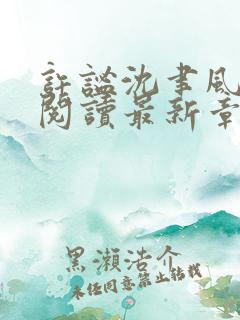 許謐沈聿風
閱讀最新章
黑瀨浩介
未经同意禁止转载